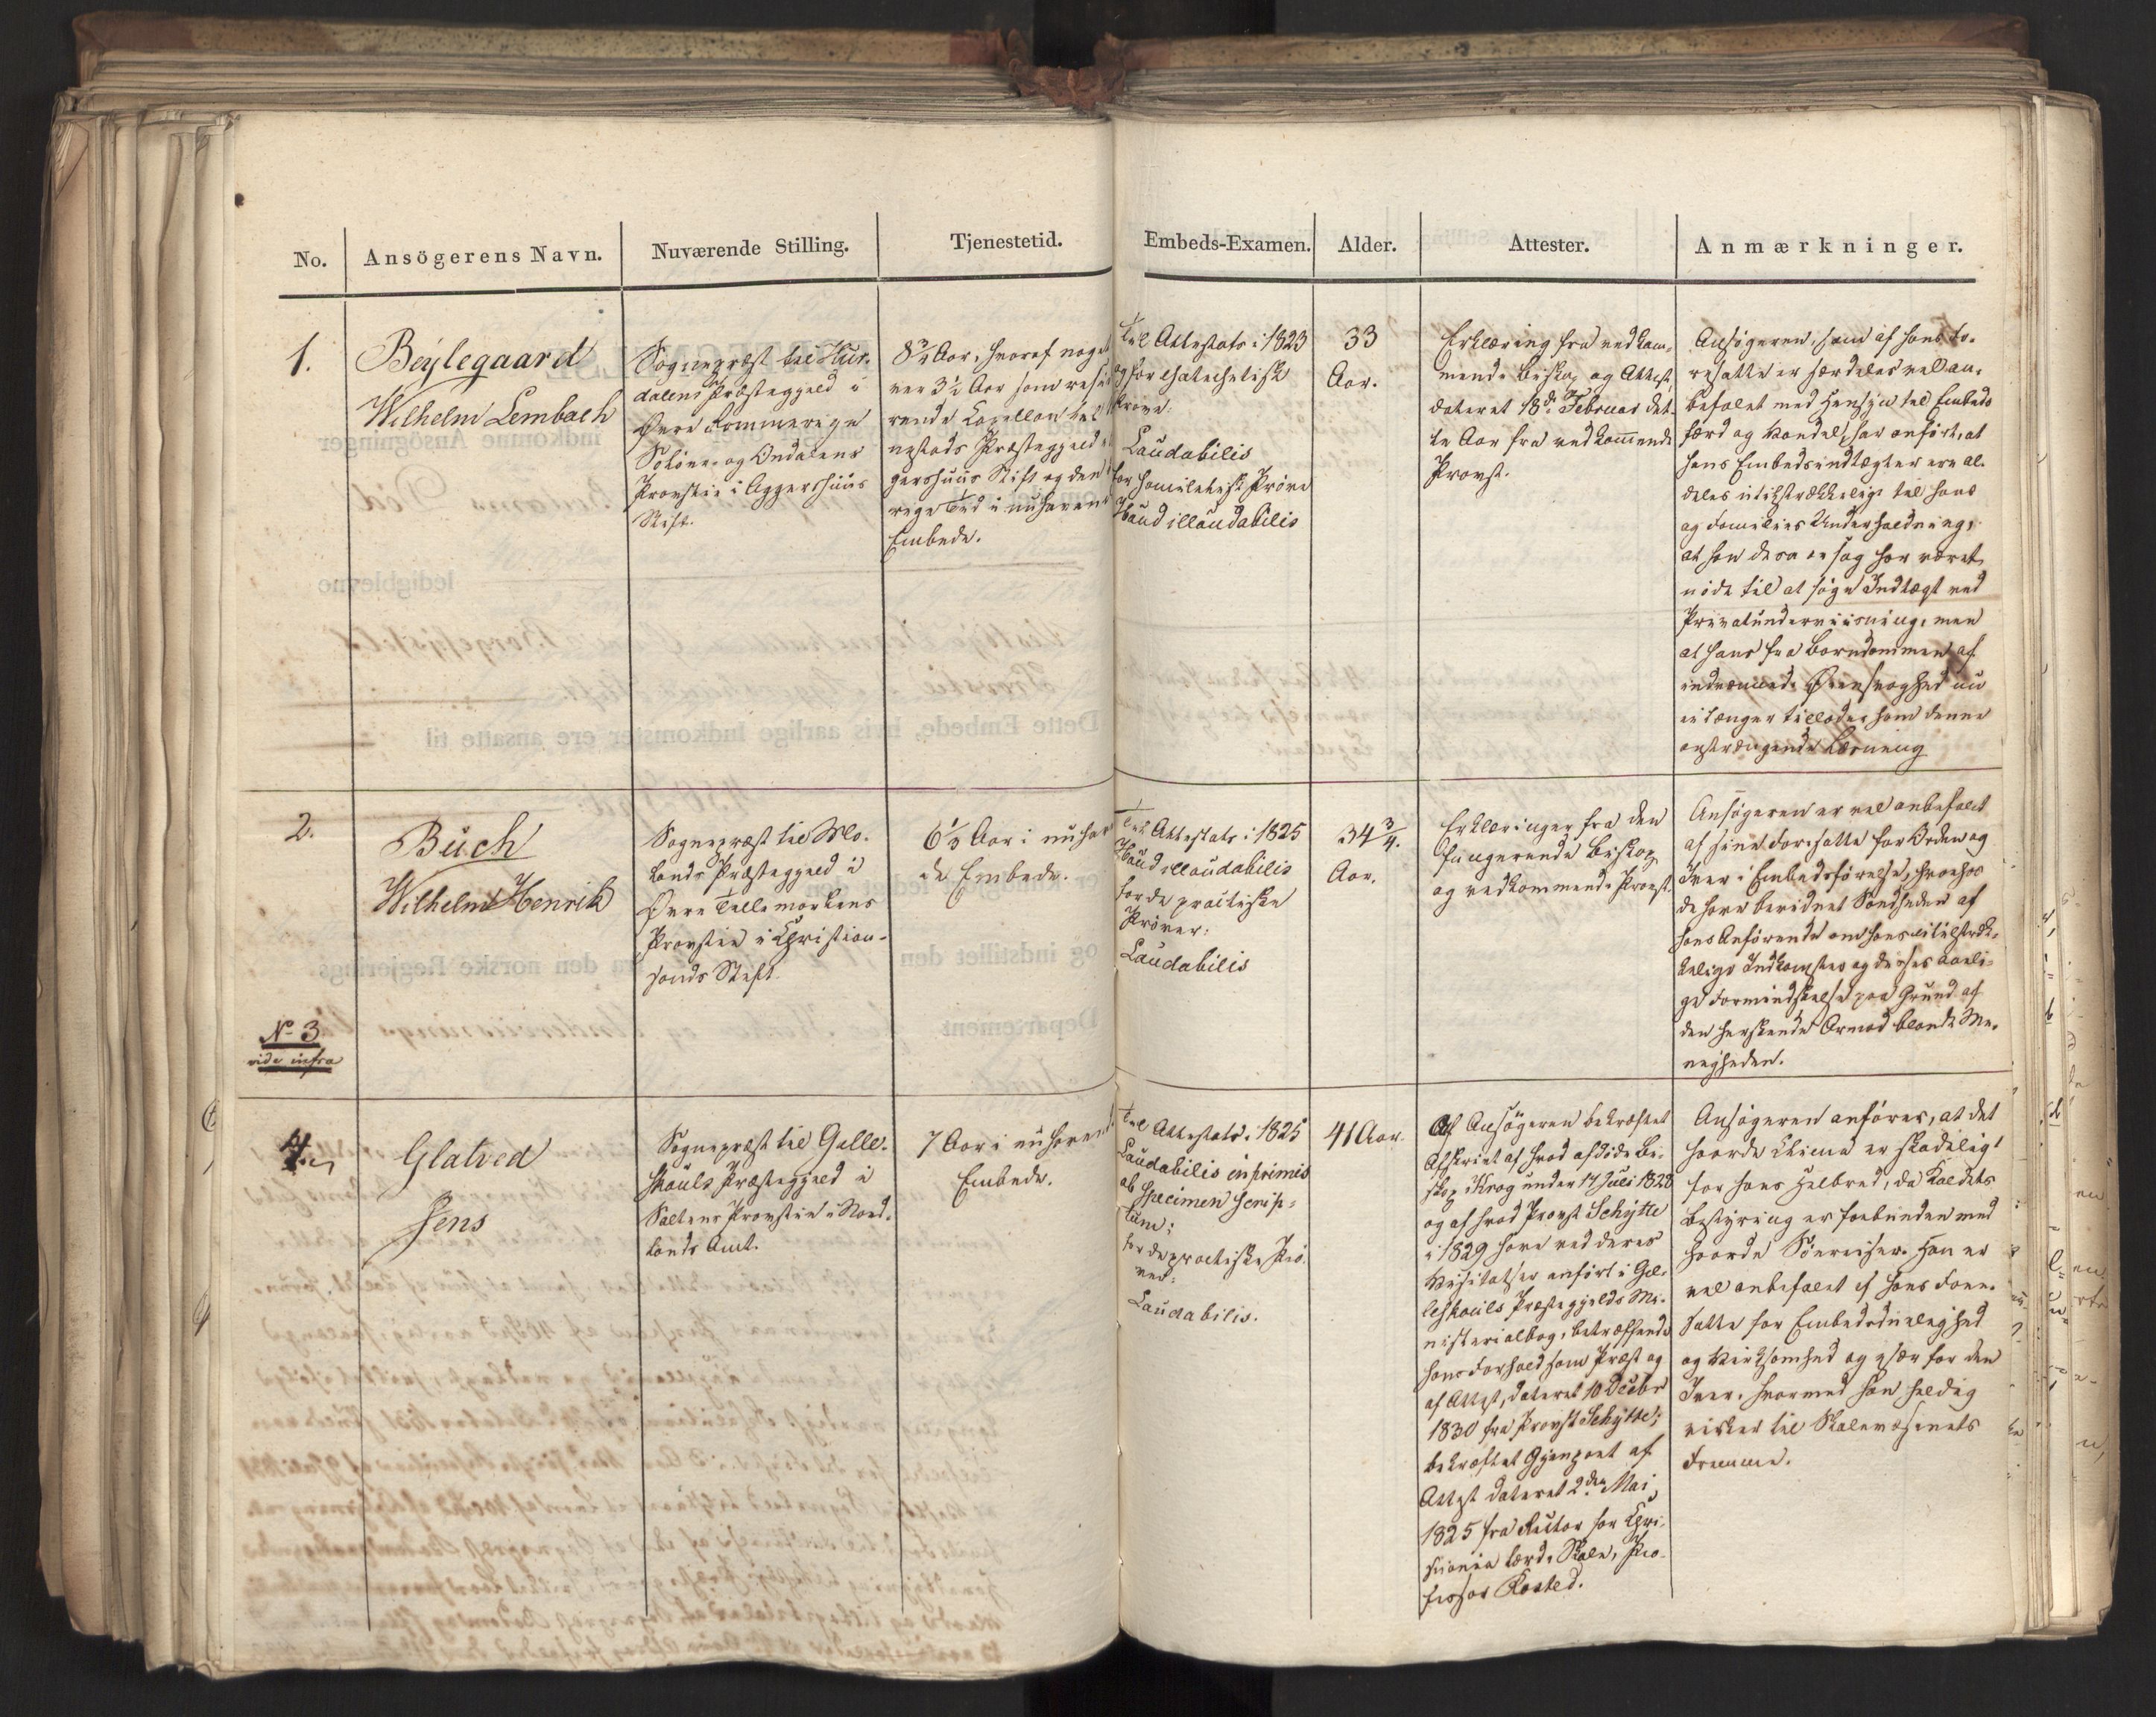 No.
Ansögerens Navn.
Nuværende Stilling.
Tjenestetid.
Embeds-Examen.
Alder.
Attester.
Anmærkninger.
1.
Beylegaard
Wilhelm Lembach
Sognepræst til Hur-
dalens Præstegjeld i
Øvre Rommerige
Solöer- og Ondalens
Provstie i Aggershuus
Stift.
8 3/4 Aar, hvoraf noget
over 3 1/2 Aar som resi
rende Kapellan til
nestads Præstegjeld
gershuus Stift og den
rige Tid i nuhavend
Embede.
Til Attestats i 1823
og for chatechetisk
Prøve:
Laudabilis
for homiletisk Prøve
Haud illaudabilis
33
Aar.
Erklæring fra vedkom-
mende Biskop og Attest,
dateret 18de Februar det-
te Aar fra vedkommende
Provst.
Ansøgeren, som af hans Fo-
resatte er særdeles vel an-
befalet med Hensyn til Embeds
færd og Vandel, har anført, at
hans Embedsindtægter ere al-
deles utilstrækkelige til hans
og Families Underholdning,
at han desaarsag har været
nødt til at søge Indtægt ved
Privatunderviisning, men
at hans fra Barndommen af
Øiensvaghed nu
ei længer tillader ham denne
anstrængende Læsning
2.
Buch
Wilhelm Henrik
Sognepræst til Mo-
lands Præstegjeld i
Øvre Tellemarkens
Provstie i Christian-
sands Stift.
6 1/3 Aar i nuhav
de Embede.
Til Attestats i 1825
Haud illaudabilis
for de practiske
Prøver:
Laudabilis
34 3/4.
Aar.
Erklæringer fra den
fungerende Biskop
og vedkommende Provst.
Ansøgeren er vel anbefalet
af sine Foresatte for Orden og
Iver i Embedsførelse, hvorhos
de have bevidnet Sandheden af
hans Anførende om hans utilstræk-
kelige Indkomster og disses aarli-
ge Formindskelse paa Grund af
den herskende Armod blandt Me-
nigheden.
No 3
vide infra
4.
Glatved
Jens
Sognepræst til Gille-
skaals Præstegjeld i
Saltens Provstie i Nord-
lands Amt.
7 Aar i nuhavend
Embede.
Til Attestats i 1825
Laudabilis inprimis
ob specimen scrip-
tum;
for de practiske Prø-
ver:
Laudabilis.
41 Aar.
Af Ansøgeren bekræftet
Afskrivt af hvad afdøde Bi-
skop Krog under 17 Juli 1828
og af hvad Provst Schytte
i 1829 have ved deres
Visitatser anført i Gil-
leskaals Præstegjelds Mi-
nisterialbog, betræffende
hans Forhold som Præst og
af Attest, dateret 10 Decbr
1830 fra Provst Schytte;
bekræftet Gjenpart af
Attest dateret 2den Mai
1825 fra Rector for Chri-
stiania lærde Skole, Pro-
fessor Rosted.
Ansøgeren anfører, at det
haarde Clima er skadeligt
for hans Helbred, da Kaldets
Bestyring er forbunden med
haarde Søereiser. Han er
vel anbefalet af hans Fore-
satte for Embedsduelighed
og Virksomhed og især for den
Iver, hvormed han heldig
virker til Skolevæsenets
Fremme.